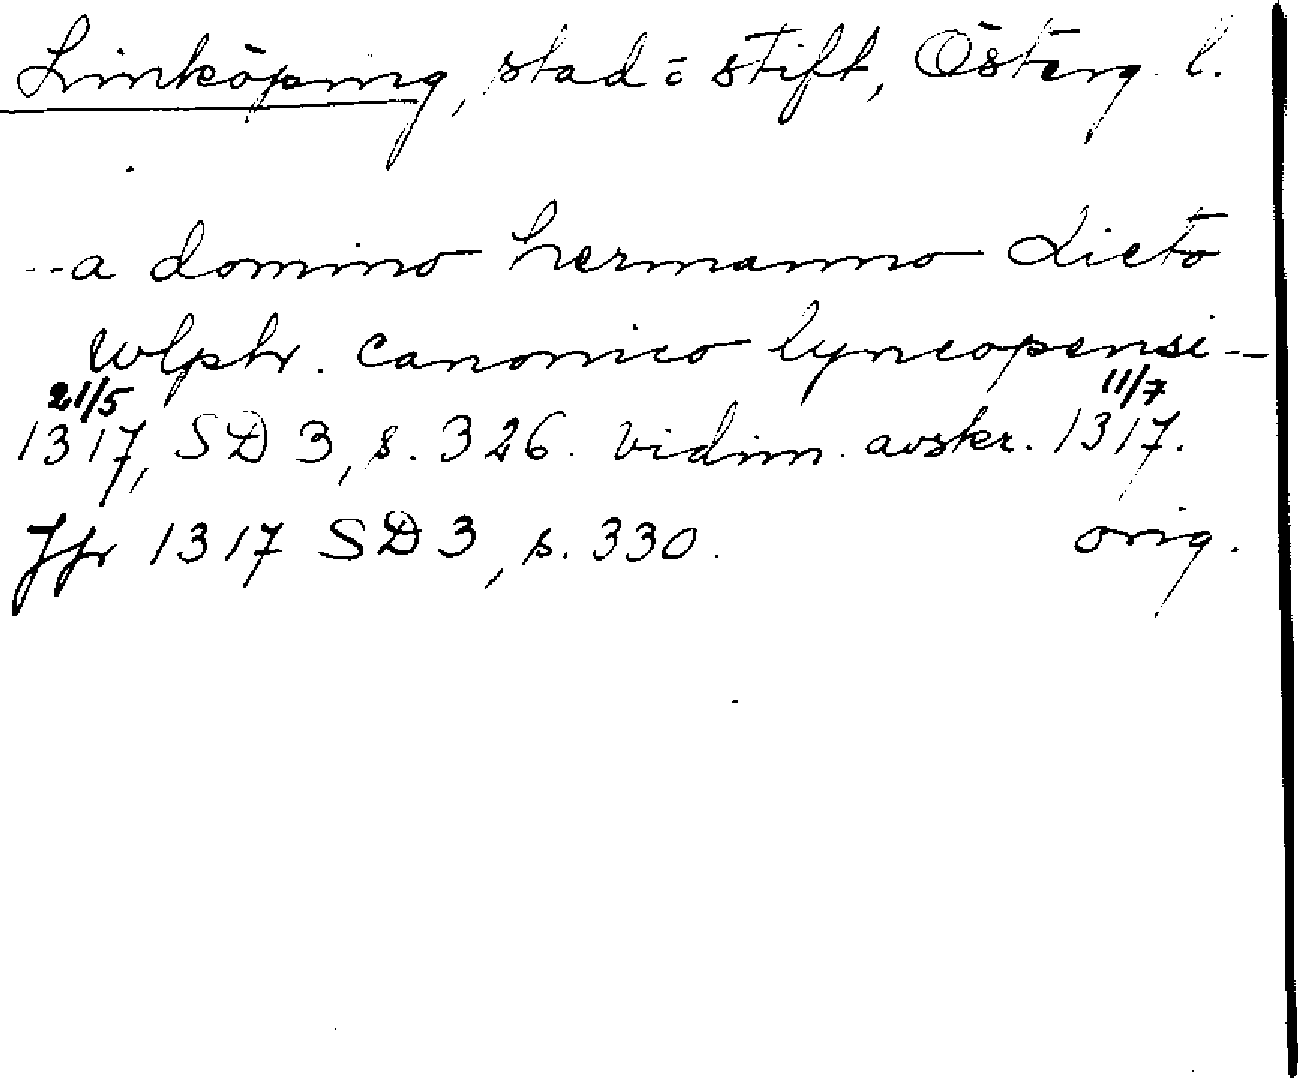 Linköping, stad o stift, Österg. l.
--a domino hermanno dicto
wlphr. canonico lyncopensi--
21/5 11/7
1317, SD 3, s. 326. vidim. avskr. 1317.
Jfr 1317 SD 3, s. 330. orig.